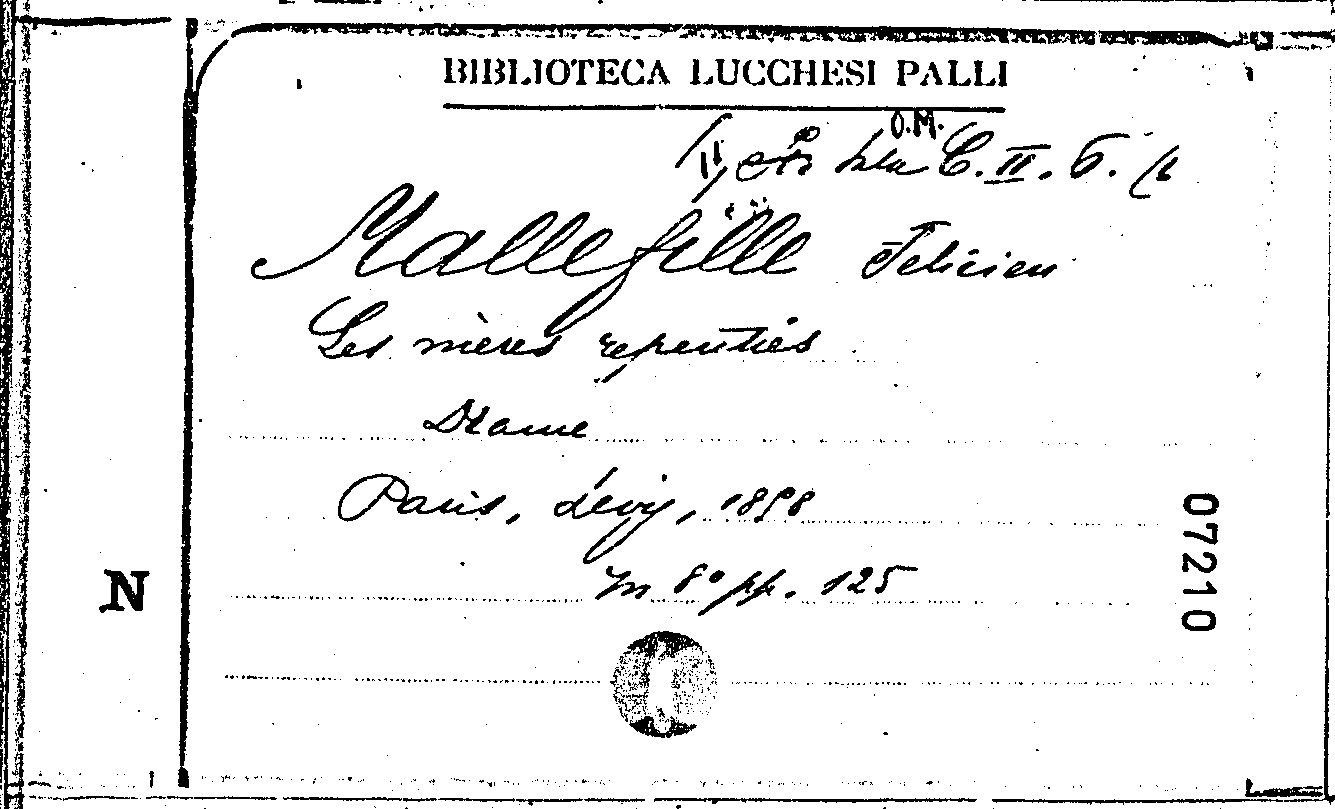 BIBLIOTECA LUCCHESI PALLI
O.M.
C. II. 6.
Mallefille Felicien
Les mères repenties
Drame
Paris, Lévy, 1858
In 8° pp. 125
07210
N